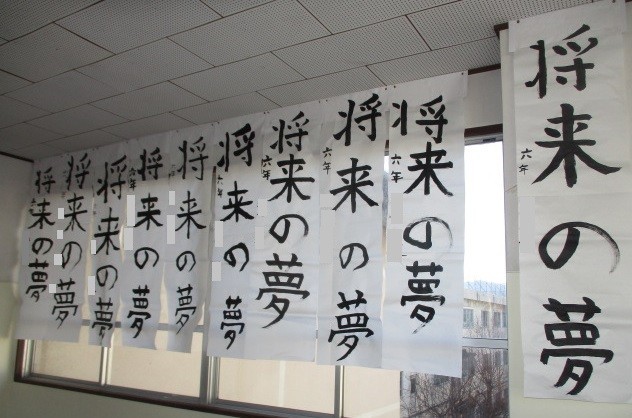 将来の夢
六年
将来の夢
六年
将来の夢
六年
将来の夢
六年
将来の夢
将来の夢
将来の夢
六年
将来の夢
将来の夢
将来の夢